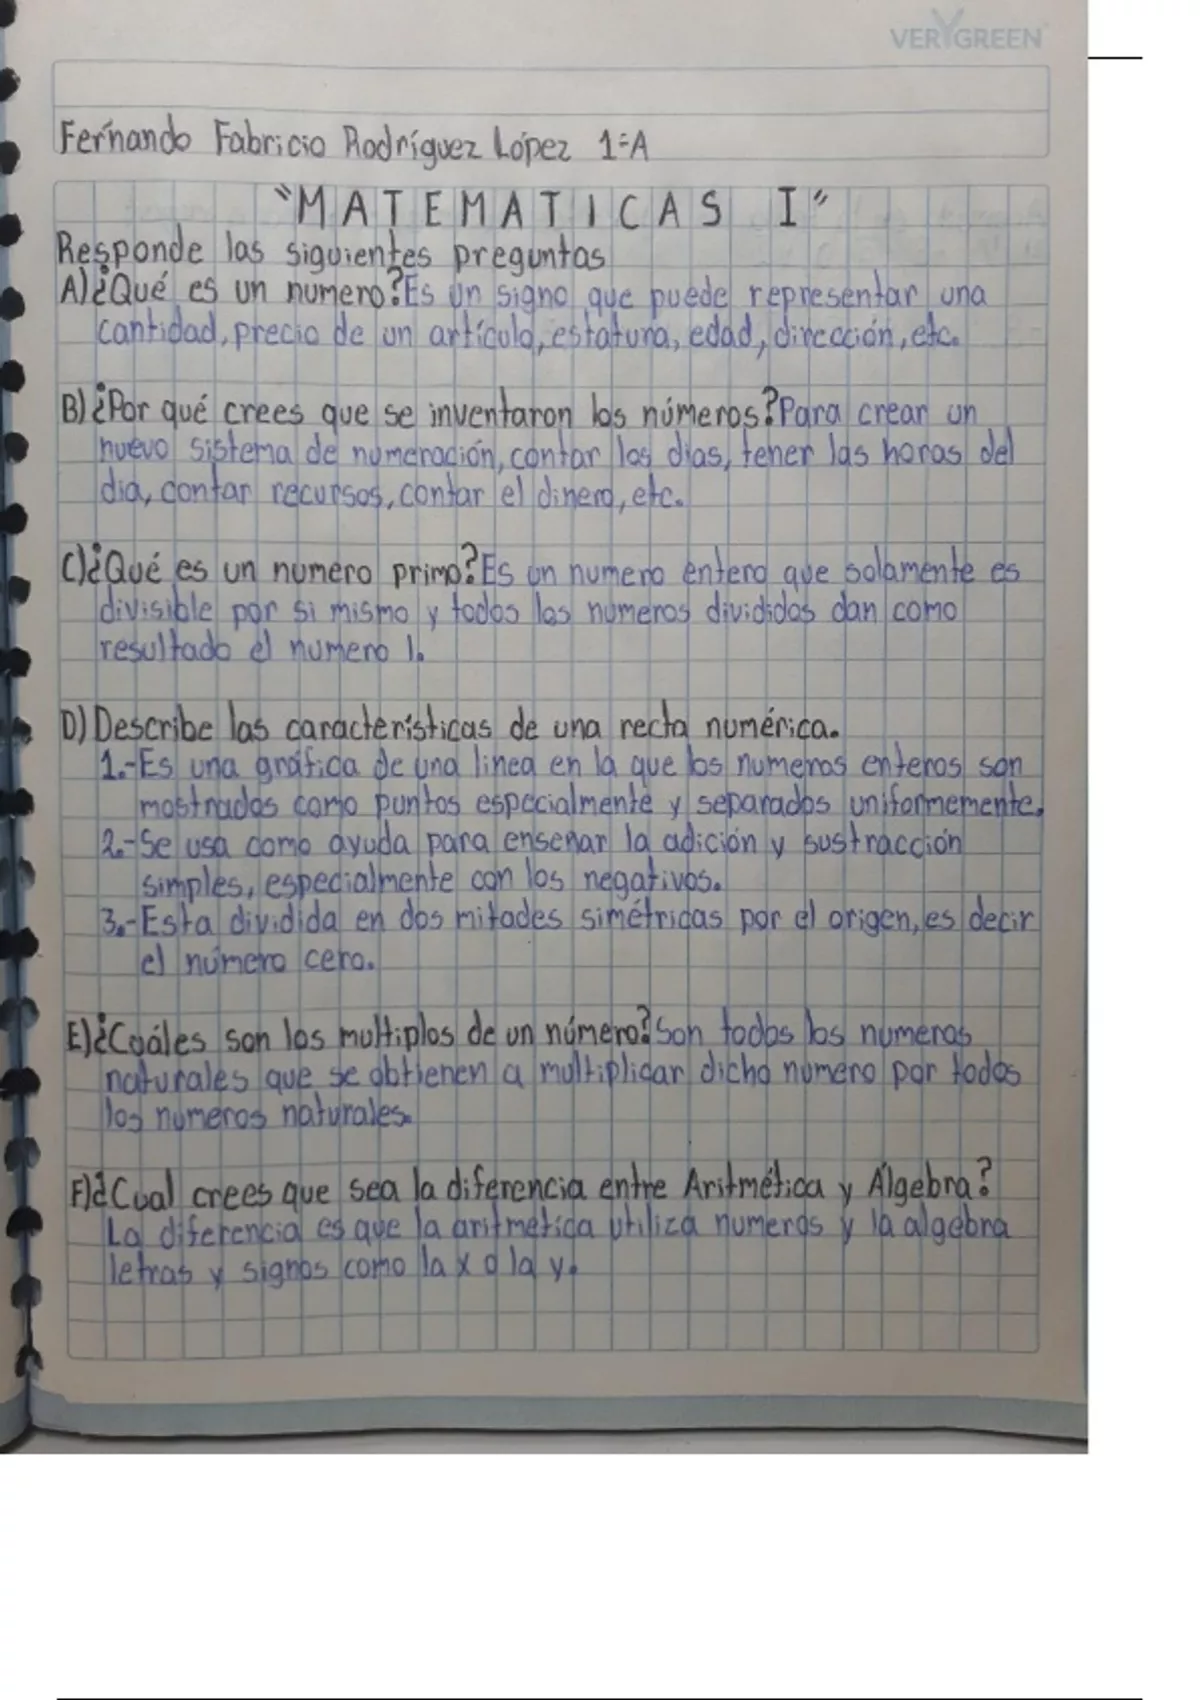 VERYGREEN
Fernando Fabricio Rodríguez López 1=A
"MATEMATICAS I"
Responde las siguientes preguntas
A)¿Qué es un numero?Es un signo que puede representar una
cantidad, precio de un artículo, estatura, edad, dirección, etc.
B)¿Por qué crees que se inventaron los números?Para crear un
nuevo sistema de numeración, contar los dias, tener las horas del
dia, contar recursos, contar el dinero, etc.
C)¿Qué es un numero primo?Es un numero entero que solamente es
divisible por si mismo y todos los numeros divididos dan como
resultado el numero 1.
D)Describe las características de una recta numérica.
1.-Es una gráfica de una linea en la que los numeros enteros son
mostrados como puntos especialmente y separados uniformemente.
2.-Se usa como ayuda para enseñar la adición y sustracción
simples, especialmente con los negativos.
3.-Esta dividida en dos mitades simétricas por el origen, es decir
el número cero.
E)¿Cuáles son los multiplos de un número?Son todos los numeros
naturales que se obtienen a multiplicar dicho numero por todos
los numeros naturales.
F)¿Cual crees que sea la diferencia entre Aritmética y Álgebra?
La diferencia es que la aritmetica utiliza numeros y la algebra
letras y signos como la x o la y.